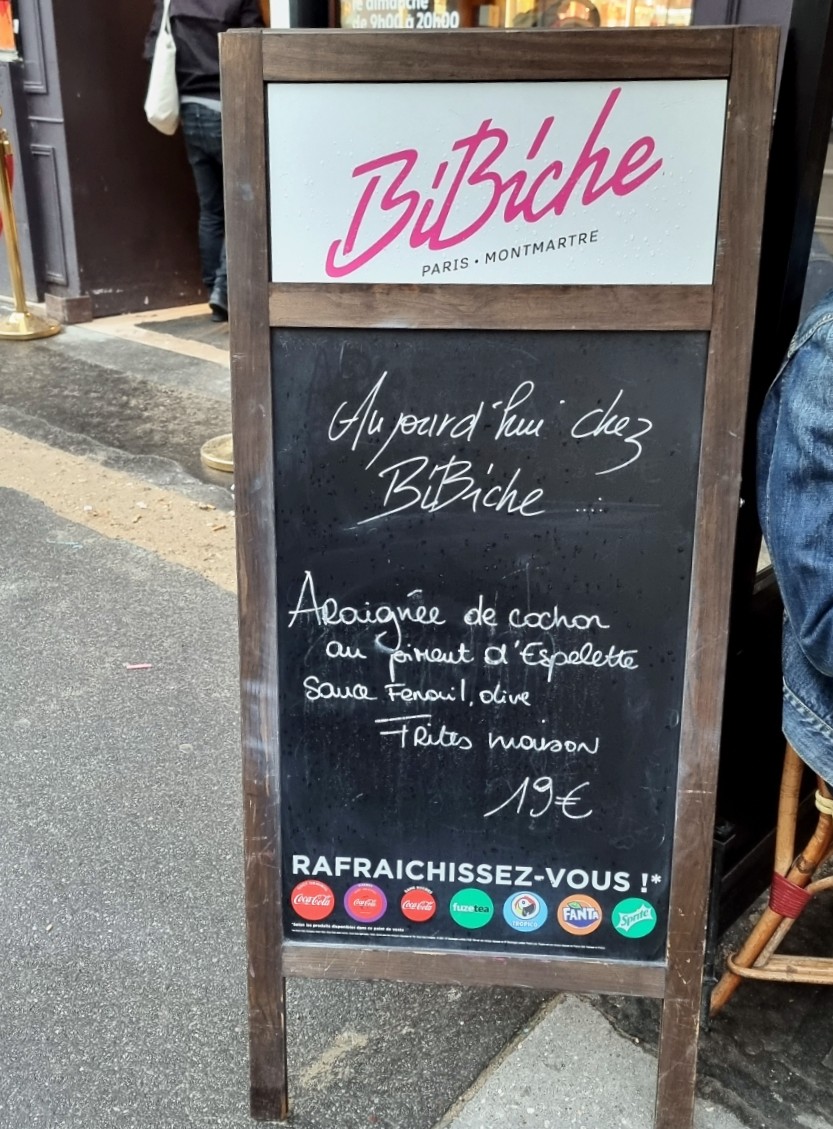 le dimanche
de 9h00 à 20h00
BiBiche
PARIS • MONTMARTRE
Aujourd'hui chez
BiBiche ....
Araignée de cochon
au piment d'Espelette
Sauce Fenouil, olive
Frites maison
19€
RAFRAICHISSEZ-VOUS !*
Coca-Cola Coca-Cola Coca-Cola fuzetea TROPICO FANTA Sprite
*Selon les produits disponibles dans ce point de vente